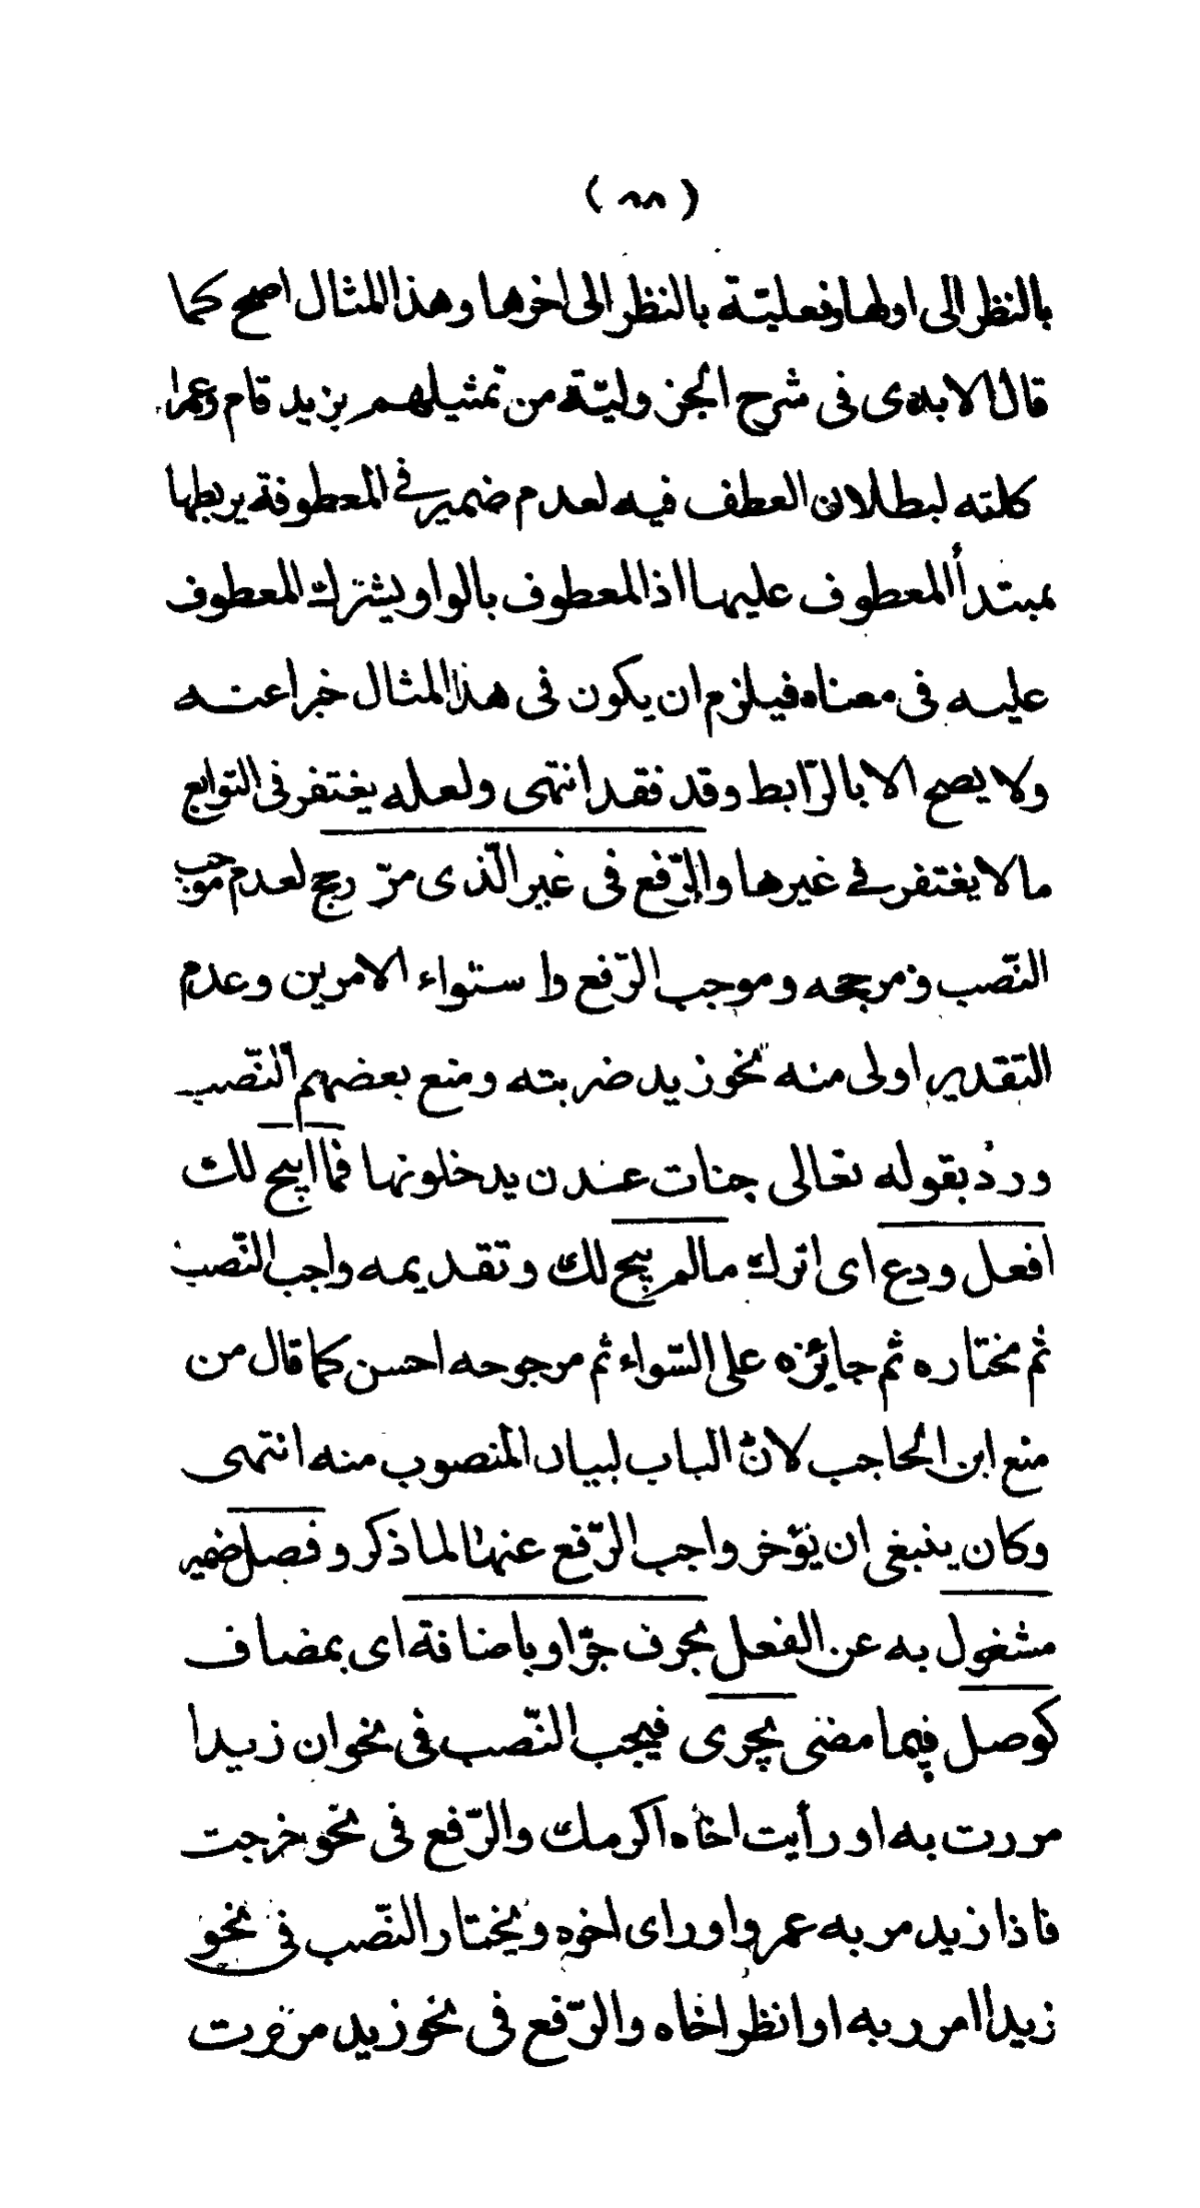 ( ٨٨ )
بالنظر الى اولها وفعليّة بالنظر الى اخرها وهذا المثال اصح كما
قال الابدى فى شرح الجزوليّة من تمثيلهم بزيد قام وعمرا
كلته لبطلان العطف فيه لعدم ضمير فى المعطوفة يربطها
بمبتدأ المعطوف عليها اذ المعطوف بالواو يشترك المعطوف
عليه فى معناه فيلزم ان يكون فى هذا المثال خبرا عنه
ولا يصح الا بالرّابط وقد فقد انتهى ولعله يغتفر فى التوابع
ما لا يغتفر فى غيرها والرّفع فى غير الّذى مرّ رجح لعدم موجب
النّصب ومرجحه وموجب الرّفع واستواء الامرين وعدم
التقدير اولى منه نحو زيد ضربته ومنع بعضهم النّصب
وردّ بقوله تعالى جنات عدن يدخلونها فما ابيح لك
افعل ودع اى اترك ما لم يبح لك وتقديمه واجب النّصب
ثم مختاره ثم جائزه على السّواء ثم مرجوحه احسن كما قال من
منع ابن الحاجب لانّ الباب لبيان المنصوب منه انتهى
وكان ينبغى ان يؤخر واجب الرّفع عنها لما ذكر وفصل ضمير
مشغول به عن الفعل بحرف جرّ او باضافة اى بمضاف
كوصل فيما مضى يجرى فيجب النّصب فى نحو ان زيدا
مررت به او رأيت اخاه اكرمك والرّفع فى نحو خرجت
فاذا زيد مر به عمرو او راى اخوه ويختار النّصب فى نحو
زيدا امرر به او انظر اخاه والرّفع فى نحو زيد مررت